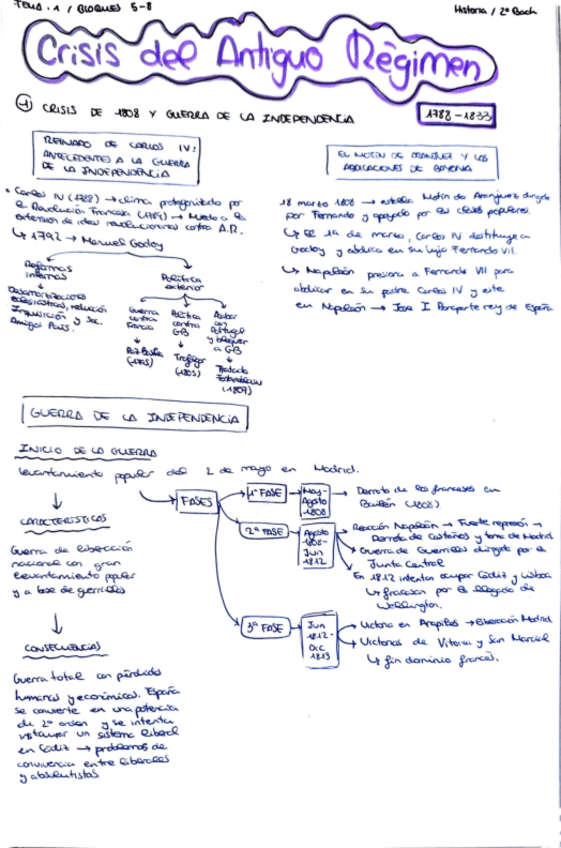 TEMA. 1 / BLOQUES 5-8
Historia / 2º Bach
Crisis del Antiguo Régimen
1 CRISIS DE 1808 Y GUERRA DE LA INDEPENDENCIA
1788-1833
REINADO DE CARLOS IV:
ANTECEDENTES A LA GUERRA
DE LA INDEPENDENCIA
• Carlos IV (1788) → clima protagonizado por
la Revolución Francesa (1789) → Miedo a la
extensión de ideas revolucionarias contra A.R.
↳ 1792 → Manuel Godoy
Reformas
internas
↓
Desamortizaciones
eclesiásticas, reducción
Inquisición y Soc.
Amigos País.
Política
exterior
Guerra
contra
Francia
↓
Paz Basilea
(1795)
Política
contra
GB
↓
Trafalgar
(1805)
Pactar
con
Portugal
y bloquear
a GB
↓
Tratado
Fontainebleau
(1807)
EL MOTÍN DE ARANJUEZ Y LAS
ABDICACIONES DE BAYONA
18 marzo 1808 → estalla Motín de Aranjuez dirigido
por Fernando y apoyado por las clases populares.
↳ El 19 de marzo, Carlos IV destituye a
Godoy y abdica en su hijo Fernando VII.
↳ Napoleón presiona a Fernando VII para
abdicar en su padre Carlos IV y este
en Napoleón → Jose I Bonaparte rey de España
GUERRA DE LA INDEPENDENCIA
INICIO DE LA GUERRA
Levantamiento popular del 2 de mayo en Madrid.
↓
CARACTERÍSTICAS
Guerra de liberación
nacional con gran
levantamiento popular
y a base de guerrillas
↓
CONSECUENCIAS
Guerra total con pérdidas
humanas y económicas. España
se convierte en una potencia
de 2º orden y se intenta
instaurar un sistema liberal
en Cádiz → problemas de
convivencia entre liberales
y absolutistas
FASES
1ª FASE → May-
Agosto
1808
→ Derrota de los franceses en
Bailén (1808)
2ª FASE
Agosto
1808-
Jun
1812
Reacción Napoleón → Fuerte represión →
Derrota de Castaños y toma de Madrid
Guerra de Guerrillas dirigida por la
Junta Central
En 1812 intentan ocupar Cádiz y Lisboa
↳ fracasan por la llegada de
Wellington.
3ª FASE
Jun
1812-
Dic
1813
Victoria en Arapiles → liberación Madrid
Victorias de Vitoria y San Marcial
↳ fin dominio francés.